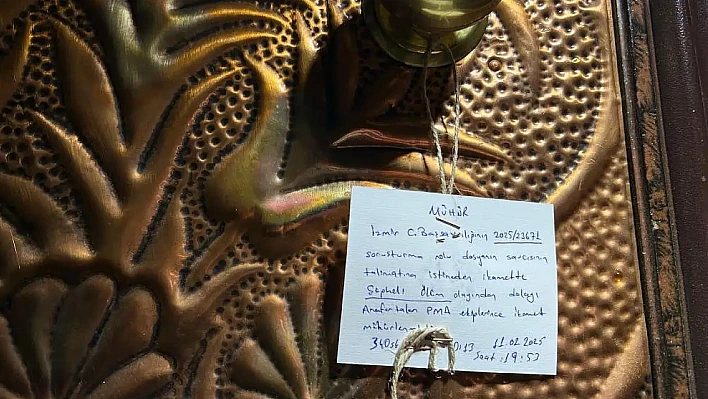 MÜHÜR
İzmir C. Başsavcılığının 2025/23671
soruşturma nolu dosyanın savcısının
talimatına istinaden ikamette
Şüpheli Ölüm olayından dolayı
Anafartalar PMA ekiplerince ikamet
mühürlen
11.02.2025
Saat: 19:53